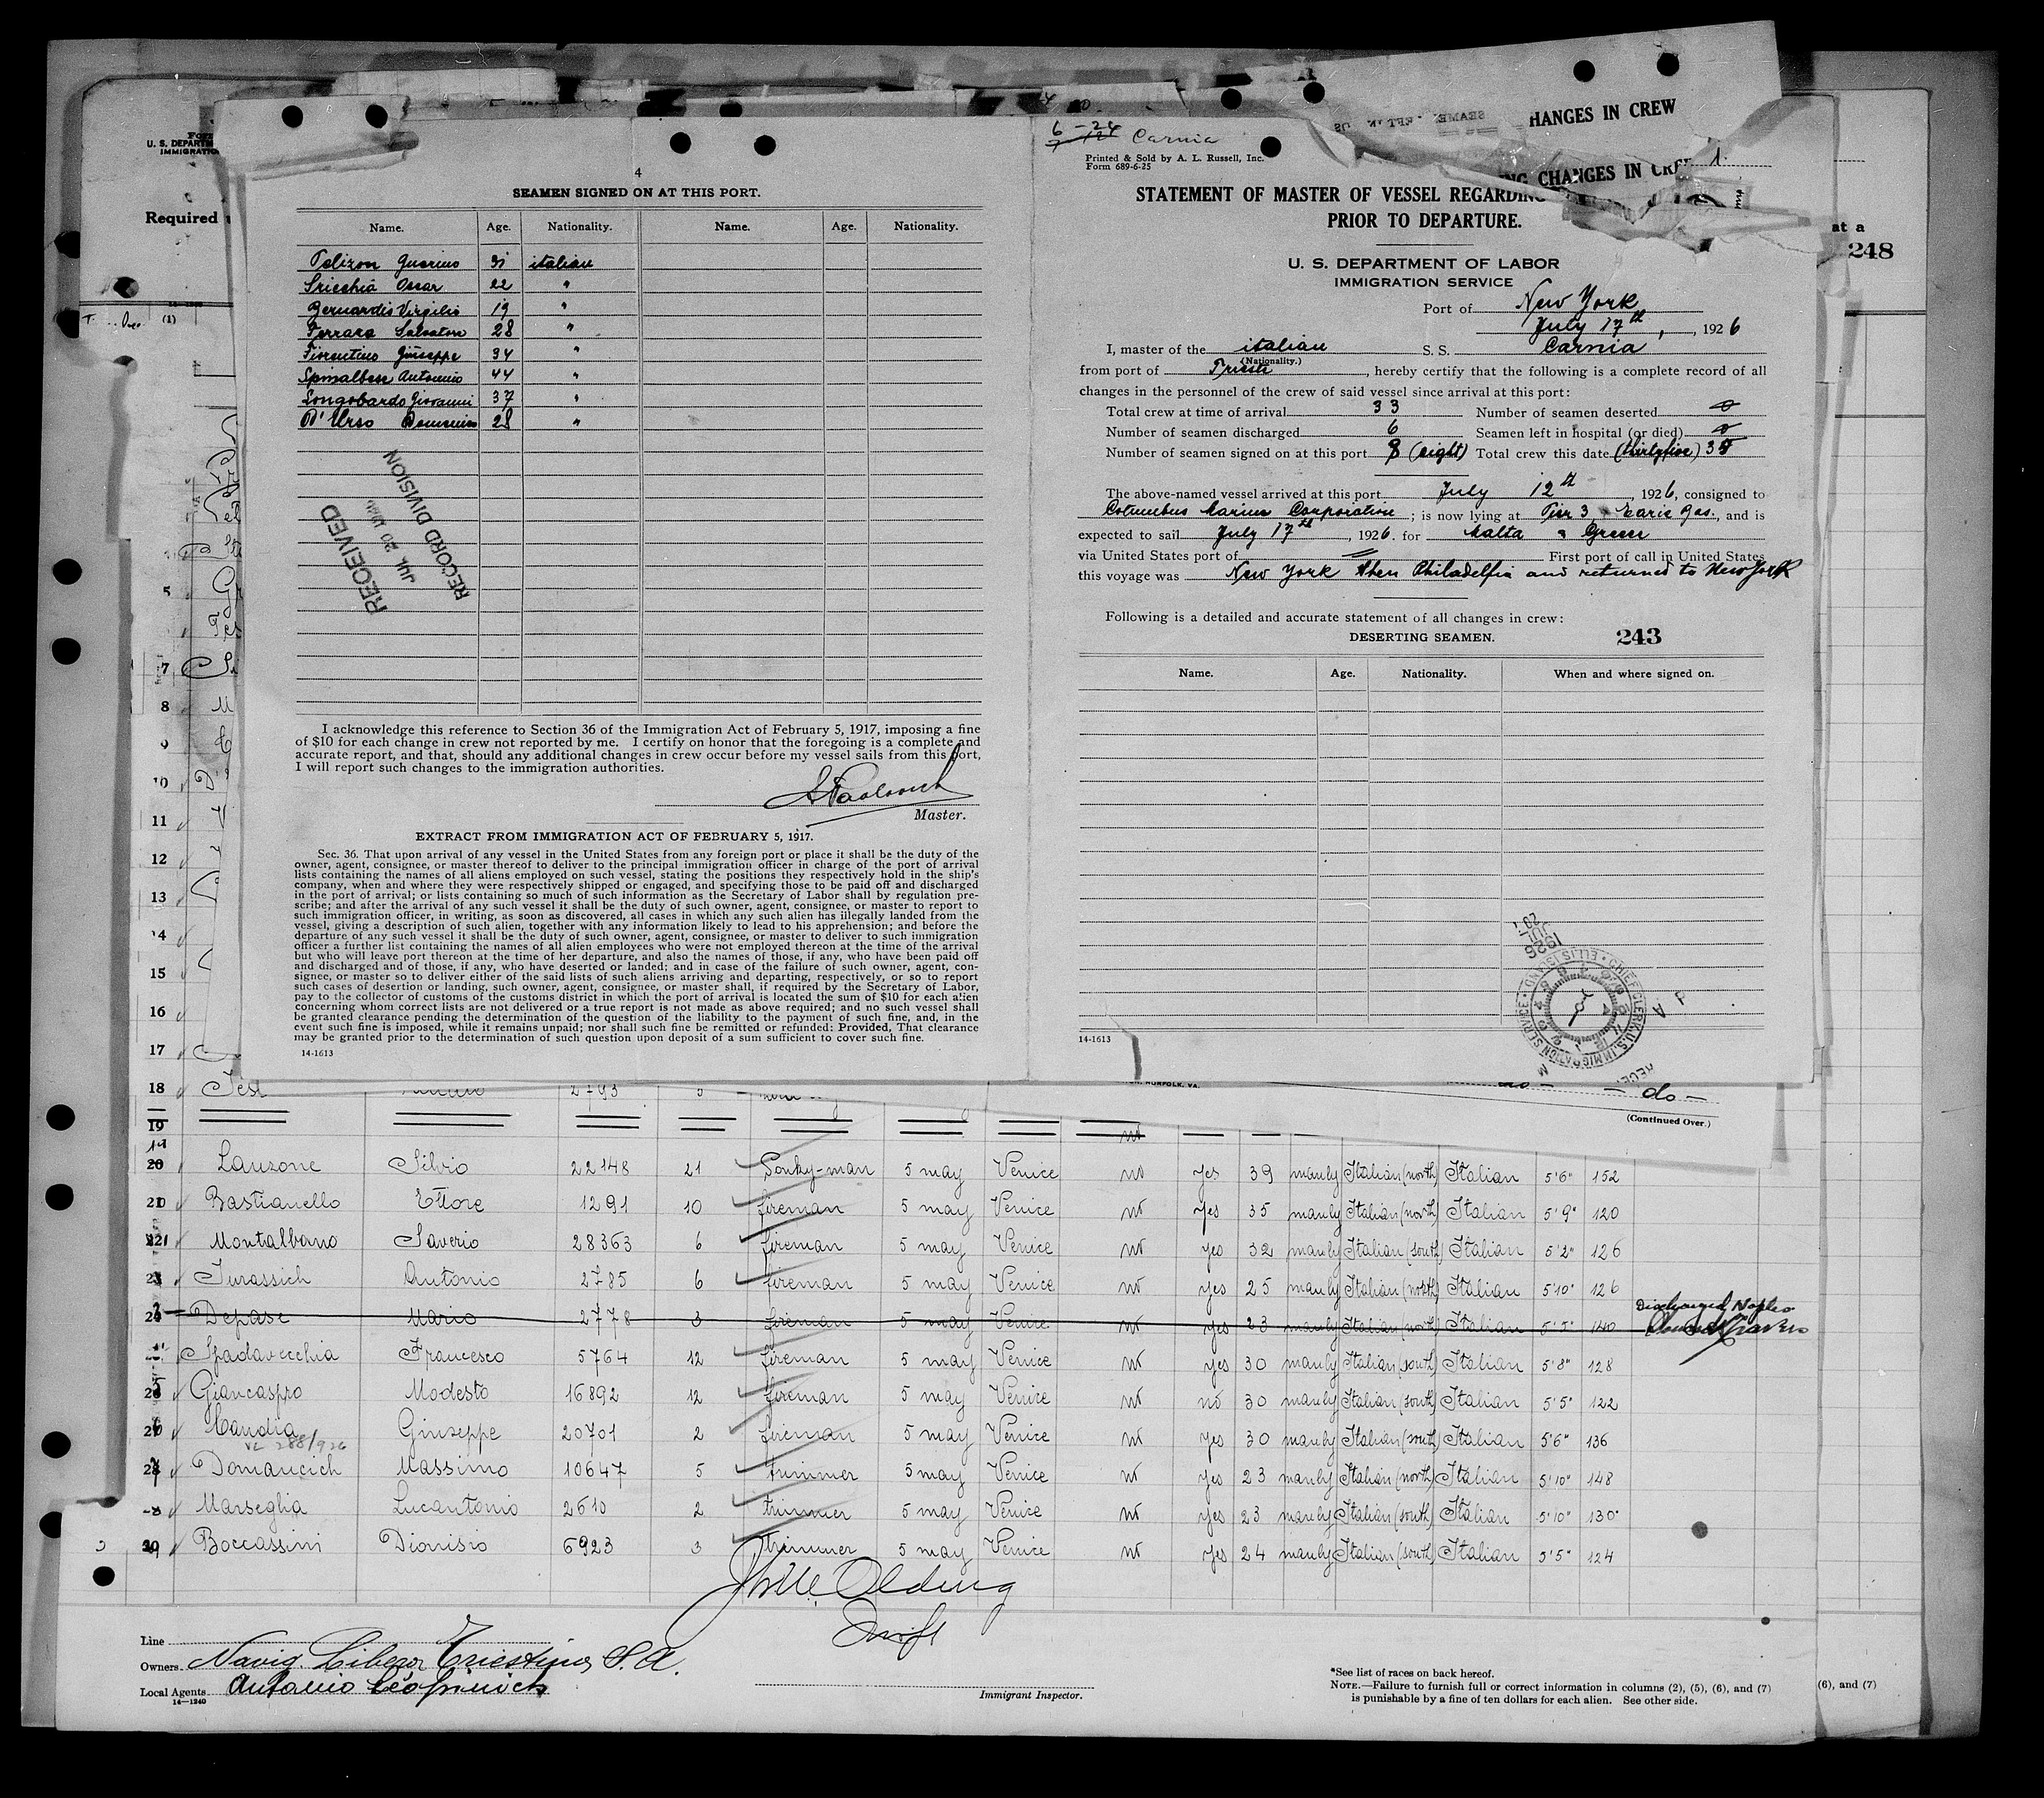 4
SEAMEN SIGNED ON AT THIS PORT.
Name. Age. Nationality. Name. Age. Nationality.
Pelizon Guerino 31 italian
Oscar 22 "
Bernardis Virgilio 19 "
Ferrara Salvatore 28 "
Fiorentino Giuseppe 34 "
Spinalbese Antonio 44 "
Longobardo Giovanni 37 "
D'Urso Domenico 28 "
RECEIVED
JUL 20
RECORD DIVISION
I acknowledge this reference to Section 36 of the Immigration Act of February 5, 1917, imposing a fine
of $10 for each change in crew not reported by me. I certify on honor that the foregoing is a complete and
accurate report, and that, should any additional changes in crew occur before my vessel sails from this port,
I will report such changes to the immigration authorities.
Master.
EXTRACT FROM IMMIGRATION ACT OF FEBRUARY 5, 1917.
Sec. 36. That upon arrival of any vessel in the United States from any foreign port or place it shall be the duty of the
owner, agent, consignee, or master thereof to deliver to the principal immigration officer in charge of the port of arrival
lists containing the names of all aliens employed on such vessel, stating the positions they respectively hold in the ship's
company, when and where they were respectively shipped or engaged, and specifying those to be paid off and discharged
in the port of arrival; or lists containing so much of such information as the Secretary of Labor shall by regulation pre-
scribe; and after the arrival of any such vessel it shall be the duty of such owner, agent, consignee, or master to report to
such immigration officer, in writing, as soon as discovered, all cases in which any such alien has illegally landed from the
vessel, giving a description of such alien, together with any information likely to lead to his apprehension; and before the
departure of any such vessel it shall be the duty of such owner, agent, consignee, or master to deliver to such immigration
officer a further list containing the names of all alien employees who were not employed thereon at the time of the arrival
but who will leave port thereon at the time of her departure, and also the names of those, if any, who have been paid off
and discharged and of those, if any, who have deserted or landed; and in case of the failure of such owner, agent, con-
signee, or master so to deliver either of the said lists of such aliens arriving and departing, respectively, or so to report
such cases of desertion or landing, such owner, agent, consignee, or master shall, if required by the Secretary of Labor,
pay to the collector of customs of the customs district in which the port of arrival is located the sum of $10 for each alien
concerning whom correct lists are not delivered or a true report is not made as above required; and no such vessel shall
be granted clearance pending the determination of the question of the liability to the payment of such fine, and, in the
event such fine is imposed, while it remains unpaid; nor shall such fine be remitted or refunded: Provided, That clearance
may be granted prior to the determination of such question upon deposit of a sum sufficient to cover such fine.
14-1613
Carnia
Printed & Sold by A. L. Russell, Inc.
Form 689-6-25
HANGES IN CREW
CHANGES IN CRE
1
STATEMENT OF MASTER OF VESSEL REGARDING
PRIOR TO DEPARTURE.
U. S. DEPARTMENT OF LABOR
IMMIGRATION SERVICE
Port of New York
July 17th, 1926
I, master of the italian S. S. Carnia
(Nationality.)
from port of Trieste, hereby certify that the following is a complete record of all
changes in the personnel of the crew of said vessel since arrival at this port:
Total crew at time of arrival 33 Number of seamen deserted 0
Number of seamen discharged 6 Seamen left in hospital (or died) 0
Number of seamen signed on at this port 8 (eight) Total crew this date (thirtyfive) 35
The above-named vessel arrived at this port July 12th, 1926, consigned to
Columbus Marine Corporation; is now lying at Pier 3, and is
expected to sail July 17th, 1926. for Malta & Greece
via United States port of First port of call in United States
this voyage was New York then Philadelfia and returned to New York
Following is a detailed and accurate statement of all changes in crew:
DESERTING SEAMEN. 243
Name. Age. Nationality. When and where signed on.
14-1613
CHIEF CLERK, U. S. IMMIGRATION SERVICE • ELLIS ISLAND
1926 JUL 20
U. S. DEPARTM
IMMIGRATIO
Required
at a
248
do —
(Continued Over.)
20 Lanzone Silvio 22148 21 Donky-man 5 may Venice no yes 39 manly Italian (north) Italian 5'6" 152
21 Bastianello Ettore 1291 10 fireman 5 may Venice no yes 35 manly Italian (north) Italian 5'9" 120
22 Montalbano Saverio 28363 6 fireman 5 may Venice no yes 32 manly Italian (south) Italian 5'2" 126
23 Jurassich Antonio 2785 6 fireman 5 may Venice no yes 25 manly Italian (north) Italian 5'10" 126
24 Depase Mario 2778 3 fireman 5 may Venice no yes 23 manly Italian (north) Italian 5'5" 140 Discharged, Naples
Spadavecchia Francesco 5764 12 fireman 5 may Venice no yes 30 manly Italian (south) Italian 5'8" 128
26 Giancaspro Modesto 16892 12 fireman 5 may Venice no no 30 manly Italian (south) Italian 5'5" 122
27 Candia Giuseppe 20701 2 fireman 5 may Venice no yes 30 manly Italian (south) Italian 5'6" 136
28 Domancich Massimo 10647 5 trimmer 5 may Venice no yes 23 manly Italian (north) Italian 5'10" 148
Marseglia Lucantonio 2610 2 trimmer 5 may Venice no yes 23 manly Italian (south) Italian 5'10" 130
30 Boccassini Dionisio 6923 3 trimmer 5 may Venice no yes 24 manly Italian (south) Italian 5'5" 124
Line
Owners. Navig. Libera Triestina, S.A.
Local Agents Antonio Cosulich
14—1240
Immigrant Inspector.
*See list of races on back hereof.
NOTE.—Failure to furnish full or correct information in columns (2), (5), (6), and (7)
is punishable by a fine of ten dollars for each alien. See other side.
(6), and (7)